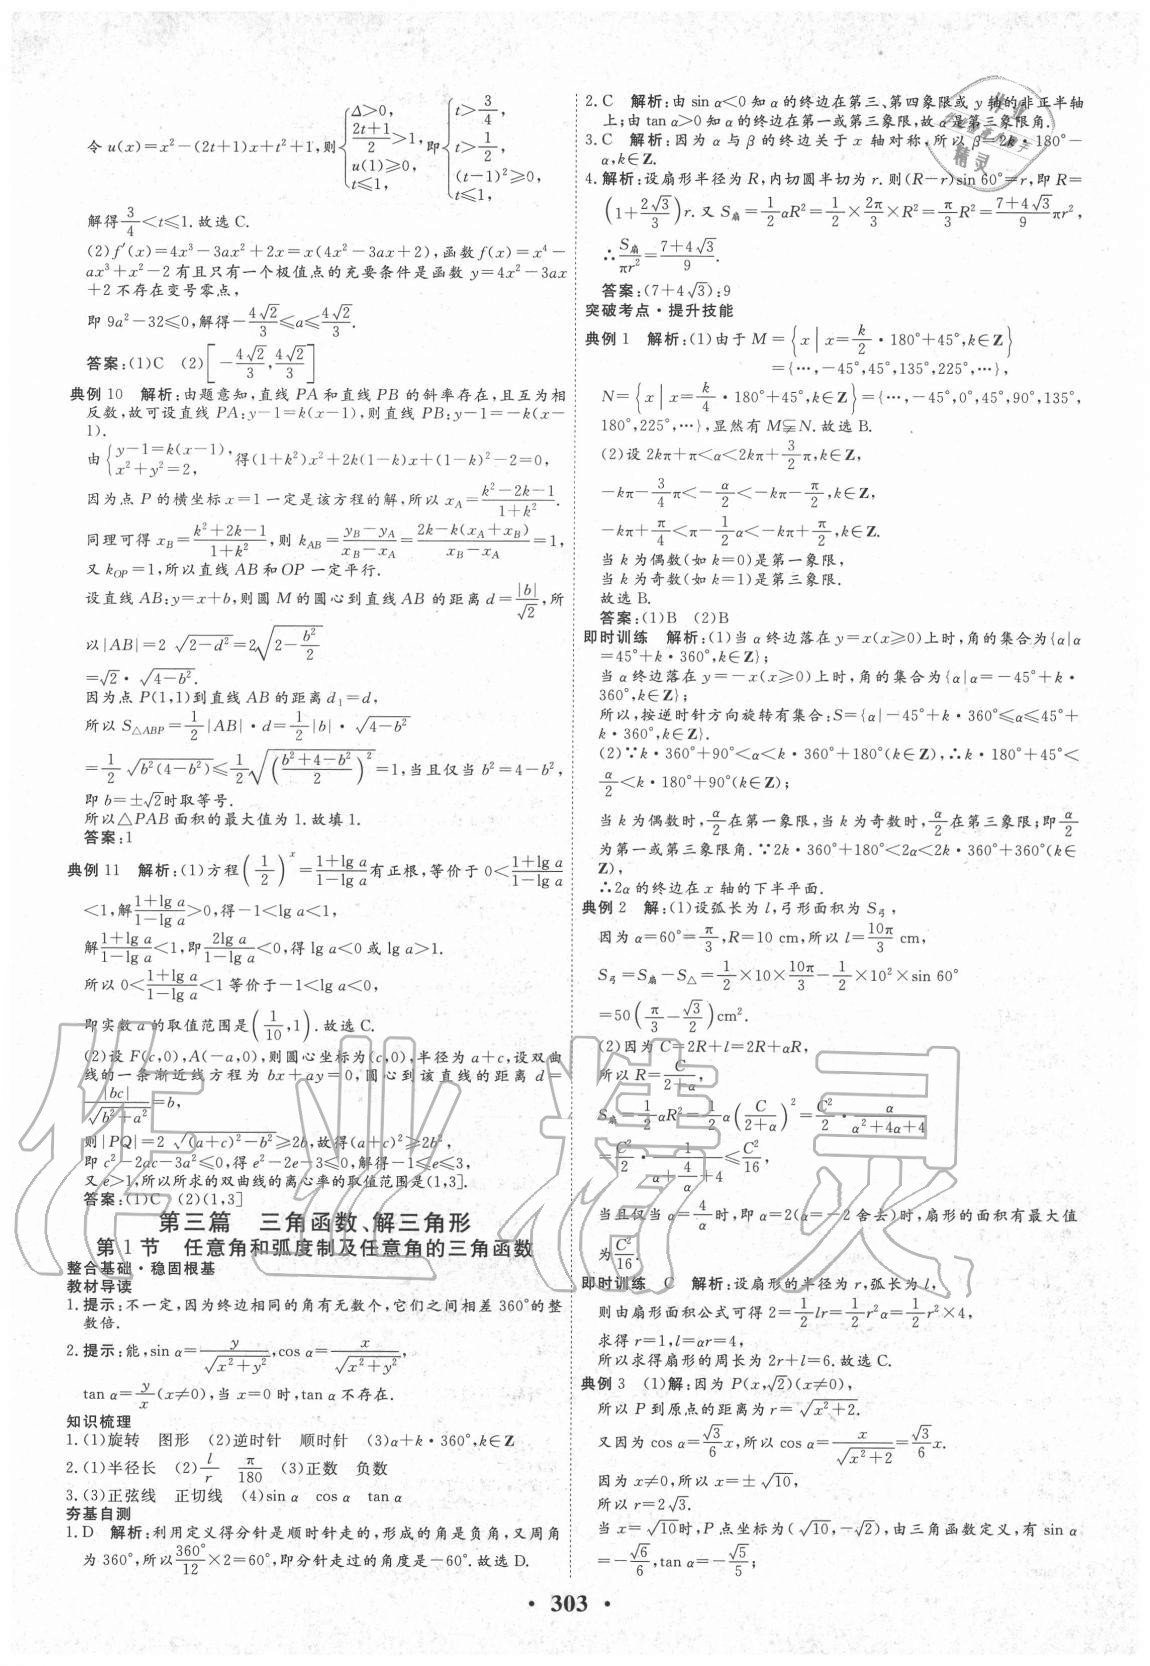 令 u(x)=x²-(2t+1)x+t²+1,则{Δ>0, (2t+1)/2>1, u(1)≥0, t≤1, 即{t>3/4, t>1/2, (t-1)²≥0, t≤1,
解得3/4<t≤1.故选 C.
(2)f′(x)=4x³-3ax²+2x=x(4x²-3ax+2),函数 f(x)=x⁴-
ax³+x²-2 有且只有一个极值点的充要条件是函数 y=4x²-3ax
+2 不存在变号零点,
即 9a²-32≤0,解得-4√2/3≤a≤4√2/3.
答案:(1)C (2)[-4√2/3,4√2/3]
典例 10 解析:由题意知,直线 PA 和直线 PB 的斜率存在,且互为相
反数,故可设直线 PA:y-1=k(x-1),则直线 PB:y-1=-k(x-
1).
由{y-1=k(x-1), x²+y²=2, 得(1+k²)x²+2k(1-k)x+(1-k)²-2=0,
因为点 P 的横坐标 x=1 一定是该方程的解,所以 x_A=(k²-2k-1)/(1+k²).
同理可得 x_B=(k²+2k-1)/(1+k²),则 k_AB=(y_B-y_A)/(x_B-x_A)=(2k-k(x_A+x_B))/(x_B-x_A)=1,
又 k_OP=1,所以直线 AB 和 OP 一定平行.
设直线 AB:y=x+b,则圆 M 的圆心到直线 AB 的距离 d=|b|/√2,所
以|AB|=2 √(2-d²)=2√(2-b²/2)
=√2·√(4-b²).
因为点 P(1,1)到直线 AB 的距离 d₁=d,
所以 S△ABP=1/2|AB|·d=1/2|b|·√(4-b²)
=1/2 √(b²(4-b²))≤1/2√(((b²+4-b²)/2)²)=1,当且仅当 b²=4-b²,
即 b=±√2时取等号.
所以△PAB 面积的最大值为 1.故填 1.
答案:1
典例 11 解析:(1)方程(1/2)^x=(1+lg a)/(1-lg a)有正根,等价于 0<(1+lg a)/(1-lg a)
<1,解(1+lg a)/(1-lg a)>0,得-1<lg a<1,
解(1+lg a)/(1-lg a)<1,即(2lg a)/(1-lg a)<0,得 lg a<0 或 lg a>1.
所以 0<(1+lg a)/(1-lg a)<1 等价于-1<lg a<0,
即实数 a 的取值范围是(1/10,1).故选 C.
(2)设 F(c,0),A(-a,0),则圆心坐标为(c,0),半径为 a+c,设双曲
线的一条渐近线方程为 bx+ay=0,圆心到该直线的距离 d=
|bc|/√(b²+a²)=b,
则|PQ|=2 √((a+c)²-b²)≥2b,故得(a+c)²≥2b²,
即 c²-2ac-3a²≤0,得 e²-2e-3≤0,解得-1≤e≤3,
又 e>1,所以所求的双曲线的离心率的取值范围是(1,3].
答案:(1)C (2)(1,3]
第三篇 三角函数、解三角形
第 1 节 任意角和弧度制及任意角的三角函数
整合基础·稳固根基
教材导读
1.提示:不一定,因为终边相同的角有无数个,它们之间相差 360°的整
数倍.
2.提示:能,sin α=y/√(x²+y²),cos α=x/√(x²+y²),
tan α=y/x(x≠0),当 x=0 时,tan α 不存在.
知识梳理
1.(1)旋转 图形 (2)逆时针 顺时针 (3)α+k·360°,k∈Z
2.(1)半径长 (2)l/r π/180 (3)正数 负数
3.(3)正弦线 正切线 (4)sin α cos α tan α
夯基自测
1.D 解析:利用定义得分针是顺时针走的,形成的角是负角,又周角
为 360°,所以360°/12×2=60°,即分针走过的角度是-60°.故选 D.
2.C 解析:由 sin α<0 知 α 的终边在第三、第四象限或 y 轴的非正半轴
上;由 tan α>0 知 α 的终边在第一或第三象限,故 α 是第三象限角.
3.C 解析:因为 α 与 β 的终边关于 x 轴对称,所以 β=2k·180°-
α,k∈Z.
4.解析:设扇形半径为 R,内切圆半切为 r.则(R-r)sin 60°=r,即 R=
(1+2√3/3)r.又 S扇=1/2αR²=1/2×2π/3×R²=π/3R²=(7+4√3)/9πr²,
∴S扇/πr²=(7+4√3)/9.
答案:(7+4√3):9
突破考点·提升技能
典例 1 解析:(1)由于 M={x|x=k/2·180°+45°,k∈Z}
={…,-45°,45°,135°,225°,…},
N={x|x=k/4·180°+45°,k∈Z}={…,-45°,0°,45°,90°,135°,
180°,225°,…},显然有 M⫋N.故选 B.
(2)设 2kπ+π<α<2kπ+3/2π,k∈Z,
-kπ-3/4π<-α/2<-kπ-π/2,k∈Z,
-kπ+π/4<π-1/2α<-kπ+π/2,k∈Z.
当 k 为偶数(如 k=0)是第一象限,
当 k 为奇数(如 k=1)是第三象限.
故选 B.
答案:(1)B (2)B
即时训练 解析:(1)当 α 终边落在 y=x(x≥0)上时,角的集合为{α|α
=45°+k·360°,k∈Z};
当 α 终边落在 y=-x(x≥0)上时,角的集合为{α|α=-45°+k·
360°,k∈Z};
所以,按逆时针方向旋转有集合:S={α|-45°+k·360°≤α≤45°+
k·360°,k∈Z}.
(2)∵k·360°+90°<α<k·360°+180°(k∈Z),∴k·180°+45°<
α/2<k·180°+90°(k∈Z);
当 k 为偶数时,α/2在第一象限,当 k 为奇数时,α/2在第三象限;即α/2
为第一或第三象限角.∵2k·360°+180°<2α<2k·360°+360°(k∈
Z),
∴2α 的终边在 x 轴的下半平面.
典例 2 解:(1)设弧长为 l,弓形面积为 S弓,
因为 α=60°=π/3,R=10 cm,所以 l=10π/3 cm,
S弓=S扇-S△=1/2×10×10π/3-1/2×10²×sin 60°
=50(π/3-√3/2)cm².
(2)因为 C=2R+l=2R+αR,
所以 R=C/(2+α),
S扇=1/2αR²=1/2α(C/(2+α))²=C²/2·α/(α²+4α+4)
=C²/2·1/(α+4/α+4)≤C²/16,
当且仅当 α=4/α时,即 α=2(α=-2 舍去)时,扇形的面积有最大值
为C²/16.
即时训练 C 解析:设扇形的半径为 r,弧长为 l,
则由扇形面积公式可得 2=1/2lr=1/2r²α=1/2r²×4,
求得 r=1,l=αr=4,
所以求得扇形的周长为 2r+l=6.故选 C.
典例 3 (1)解:因为 P(x,√2)(x≠0),
所以 P 到原点的距离为 r=√(x²+2).
又因为 cos α=√3/6x,所以 cos α=x/√(x²+2)=√3/6x.
因为 x≠0,所以 x=±√10,
所以 r=2√3.
当 x=√10时,P 点坐标为(√10,-√2),由三角函数定义,有 sin α
=-√6/6,tan α=-√5/5;
· 303 ·
作业精灵